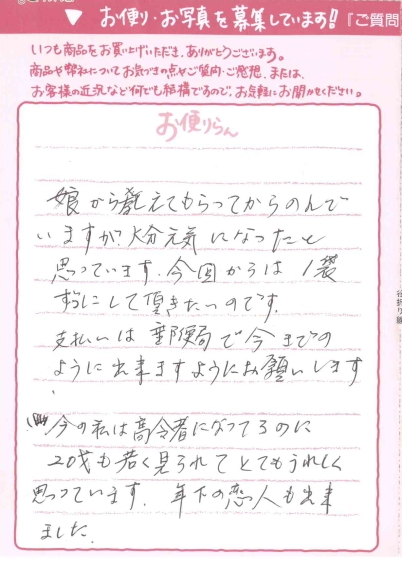 ▼ お便り・お写真を募集しています!!『ご質問
いつも商品をお買い上げいただき、ありがとうございます。
商品や弊社についてお気づきの点やご質問・ご感想、または、
お客様の近況など何でも結構ですので、お気軽にお聞かせください。
お便りらん
娘から教えてもらってからのんで
いますが?大分元気になったと
思っています。今回からは1袋
ずつにして頂きたいのです。
支払いは郵便局で今までの
ように出来ますようにお願いします
今の私は高令者になってるのに
20才も若く見られてとてもうれしく
思っています。年下の恋人も出来
ました。
谷折り線